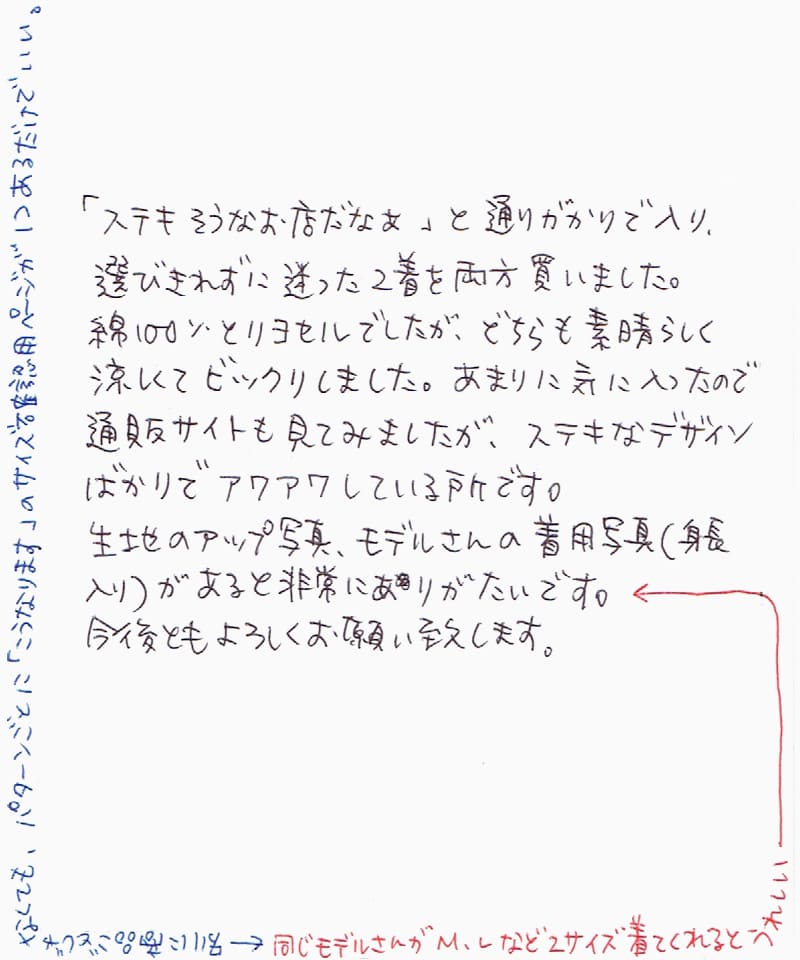 「ステキそうなお店だなぁ」と通りがかりで入り、
選びきれずに迷った2着を両方買いました。
綿100%とリヨセルでしたが、どちらも素晴らしく
涼しくてビックリしました。あまりに気に入ったので
通販サイトも見てみましたが、ステキなデザイン
ばかりでアワアワしている所です。
生地のアップ写真、モデルさんの着用写真(身長
入り)があると非常にありがたいです。
今後ともよろしくお願い致します。
同じモデルさんがM、Lなど2サイズ着てくれるとう
れしい
別に商品ごと
なくても、パターンごとに「こうなります」のサイズ確認用ページが1つあるだけでいい。